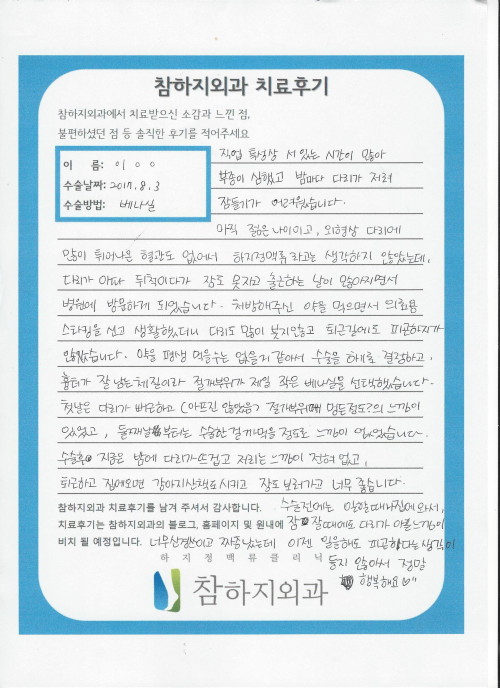 참하지외과 치료후기
참하지외과에서 치료받으신 소감과 느낀 점,
불편하셨던 점 등 솔직한 후기를 적어주세요
이 름: 이 ㅇ ㅇ
수술날짜: 2017. 8. 3
수술방법: 베나실
직업 특성상 서 있는 시간이 많아
부종이 심했고 밤마다 다리가 저려
잠들기가 어려웠습니다.
아직 젊은 나이이고, 외형상 다리에
많이 튀어나온 혈관도 없어서 하지정맥류라고는 생각하지 않았는데,
다리가 아파 뒤척이다가 잠도 못자고 출근하는 날이 많아지면서
병원에 방문하게 되었습니다. 처방해주신 약을 먹으면서 의료용
스타킹을 신고 생활했더니 다리도 많이 붓지않고 퇴근길에도 피곤하지가
않았습니다. 약을 평생 먹을수는 없을거 같아서 수술을 하기로 결정하고,
흉터가 잘 남는 체질이라 절개부위가 제일 작은 베나실을 선택했습니다.
첫날은 다리가 뻐근하고 (아프진 않았음) 절개부위 멍든정도?의 느낌이
있었고, 둘째날부터는 수술한걸 까먹을 정도로 느낌이 없었습니다.
수술후 지금은 밤에 다리가 뜨겁고 저리는 느낌이 전혀 없고,
퇴근하고 집에오면 강아지산책도 시키고 잠도 보러가고 너무 좋습니다.
참하지외과 치료후기를 남겨 주셔서 감사합니다. 수술전에는 일할때나 집에와서,
치료후기는 참하지외과의 블로그, 홈페이지 및 원내에 잠 잘때에도 다리가 아픈느낌이
비치 될 예정입니다. 너무 이고 짜증났는데 이젠 일을해도 피곤하다는 생각이
하 지 정 맥 류 클 리 닉 들지 않아서 정말
참하지외과 행복해요♡"